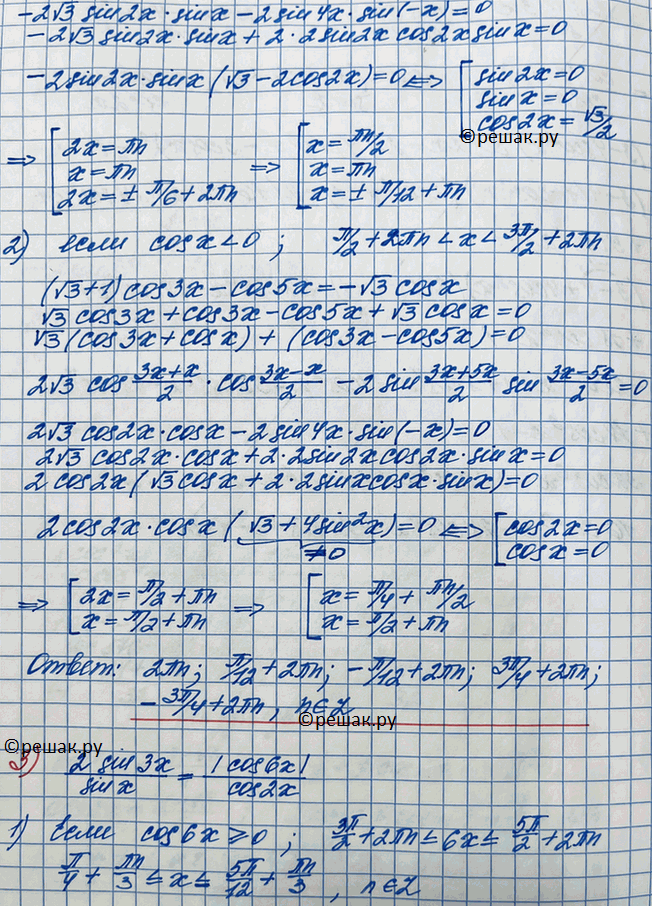 -2√3 sin2x · sinx - 2 sin4x · sin(-x) = 0
-2√3 sin2x · sinx + 2 · 2sin2x cos2x sinx = 0
-2sin2x · sinx (√3 - 2cos2x) = 0 <=> [ sin2x = 0
sinx = 0
cos2x = √3/2
©решак.ру
=> [ 2x = πn => [ x = πn/2
x = πn x = πn
2x = ± π/6 + 2πn x = ± π/12 + πn
2) если cosx < 0 ; π/2 + 2πn < x < 3π/2 + 2πn
(√3+1) cos3x - cos5x = -√3 cosx
√3 cos3x + cos3x - cos5x + √3 cosx = 0
√3 (cos3x + cosx) + (cos3x - cos5x) = 0
2√3 cos (3x+x)/2 · cos (3x-x)/2 - 2 sin (3x+5x)/2 sin (3x-5x)/2 = 0
2√3 cos2x · cosx - 2 sin4x · sin(-x) = 0
2√3 cos2x · cosx + 2 · 2sin2x cos2x · sinx = 0
2 cos2x (√3 cosx + 2 · 2sinx cosx · sinx) = 0
2 cos2x · cosx (√3 + 4sin²x) = 0 <=> [ cos2x = 0
≠0 cosx = 0
=> [ 2x = π/2 + πn => [ x = π/4 + πn/2
x = π/2 + πn x = π/2 + πn
Ответ: 2πn; π/12 + 2πn; -π/12 + 2πn; 3π/4 + 2πn;
-3π/4 + 2πn, n∈Z
©решак.ру
©решак.ру
3) 2 sin3x / sinx = |cos6x| / cos2x
1) Если cos6x ≥ 0 ; 3π/2 + 2πn ≤ 6x ≤ 5π/2 + 2πn
π/4 + πn/3 ≤ x ≤ 5π/12 + πn/3 , n∈Z